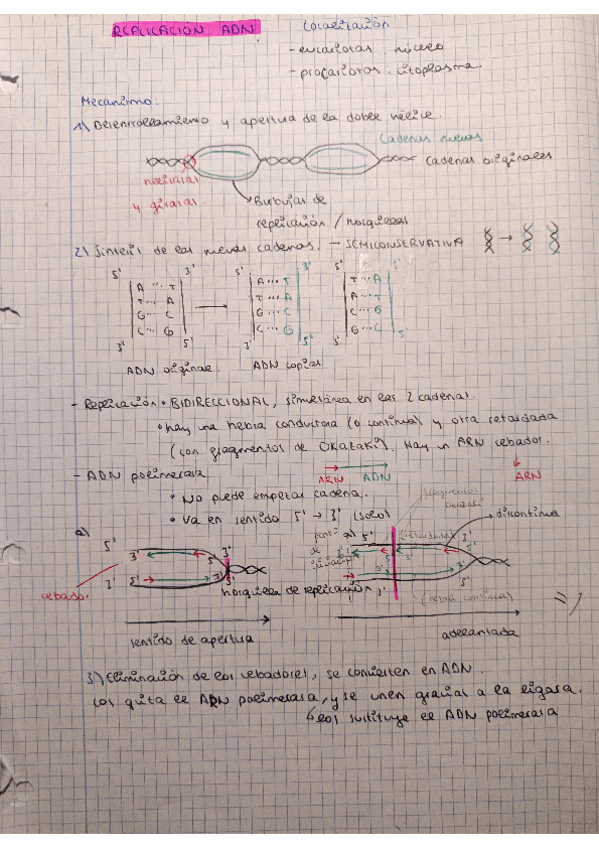 REPLICACIÓN ADN
Localización
- eucariotas: núcleo
- procariotas: citoplasma.
Mecanismo:
1) Desenrrollamiento y apertura de la doble hélice.
Cadenas nuevas
Cadenas originales
helicasas
y girasas
Burbujas de
replicación / horquillas
2) Síntesis de las nuevas cadenas. → SEMICONSERVATIVA
5' 3' 5' 3'
A ··· T A ··· T T ··· A
T ··· A T ··· A A ··· T
G ··· C G ··· C G ··· C
C ··· G C ··· G C ··· G
3' 5' 3' 5' 5'
ADN original. ADN copias
- Replicación • BIDIRECCIONAL, simultánea en las 2 cadenas.
• hay una hebra conductora (o continua) y otra retardada
(con fragmentos de Okazaki). Hay un ARN cebador.
- ADN polimerasa
ARN ADN
ARN
• No puede empezar cadena.
• Va en sentido 5' → 3' (solo)
a) 5' 3' 5' 3'
3' 5' 3' 3'
cebador
horquilla de replicación
sentido de apertura
5' 3' 5' 3'
3' 3' 3' 3'
discontinua
(retardada)
(hebra continua)
adelantada
3) Eliminación de los cebadores, se convierten en ADN.
Los quita el ARN polimerasa, y se unen gracias a la ligasa.
↳ los sustituye el ADN polimerasa